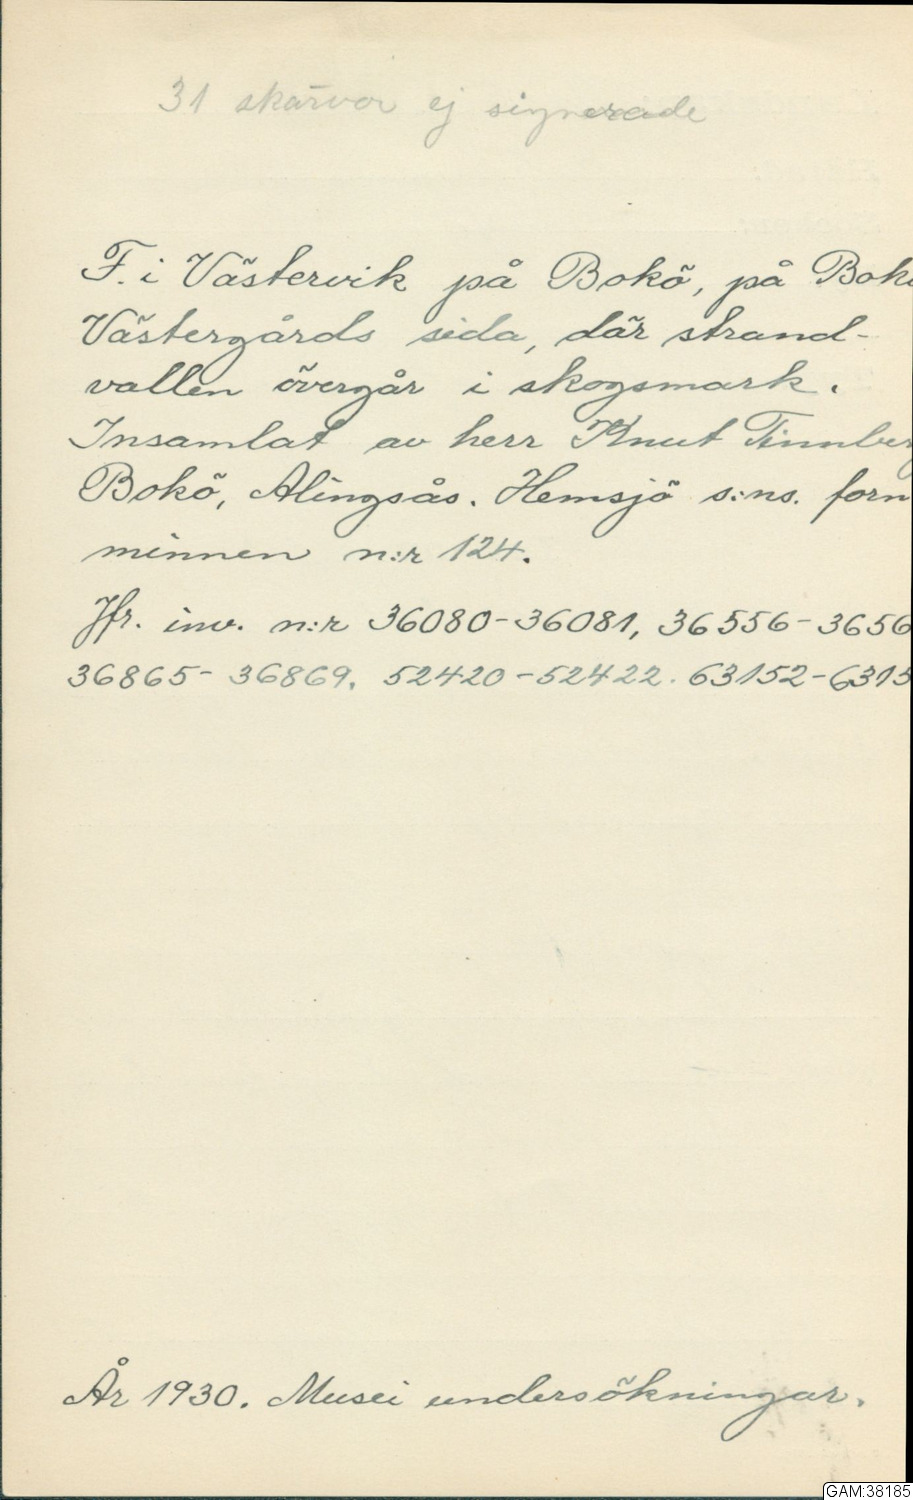 31 skärvor ej signerade
F. i Västervik på Bokö, på Bok
Västergårds sida, där strand-
vallen övergår i skogsmark.
Insamlat av herr Knut
Bokö, Alingsås. Hemsjö s:ns. forn
minnen n:r 124.
Jfr. inv. n:r 36080-36081, 36556-3656
36865-36869. 52420-52422. 63152-6315
År 1930. Musei undersökningar.
GAM:38185